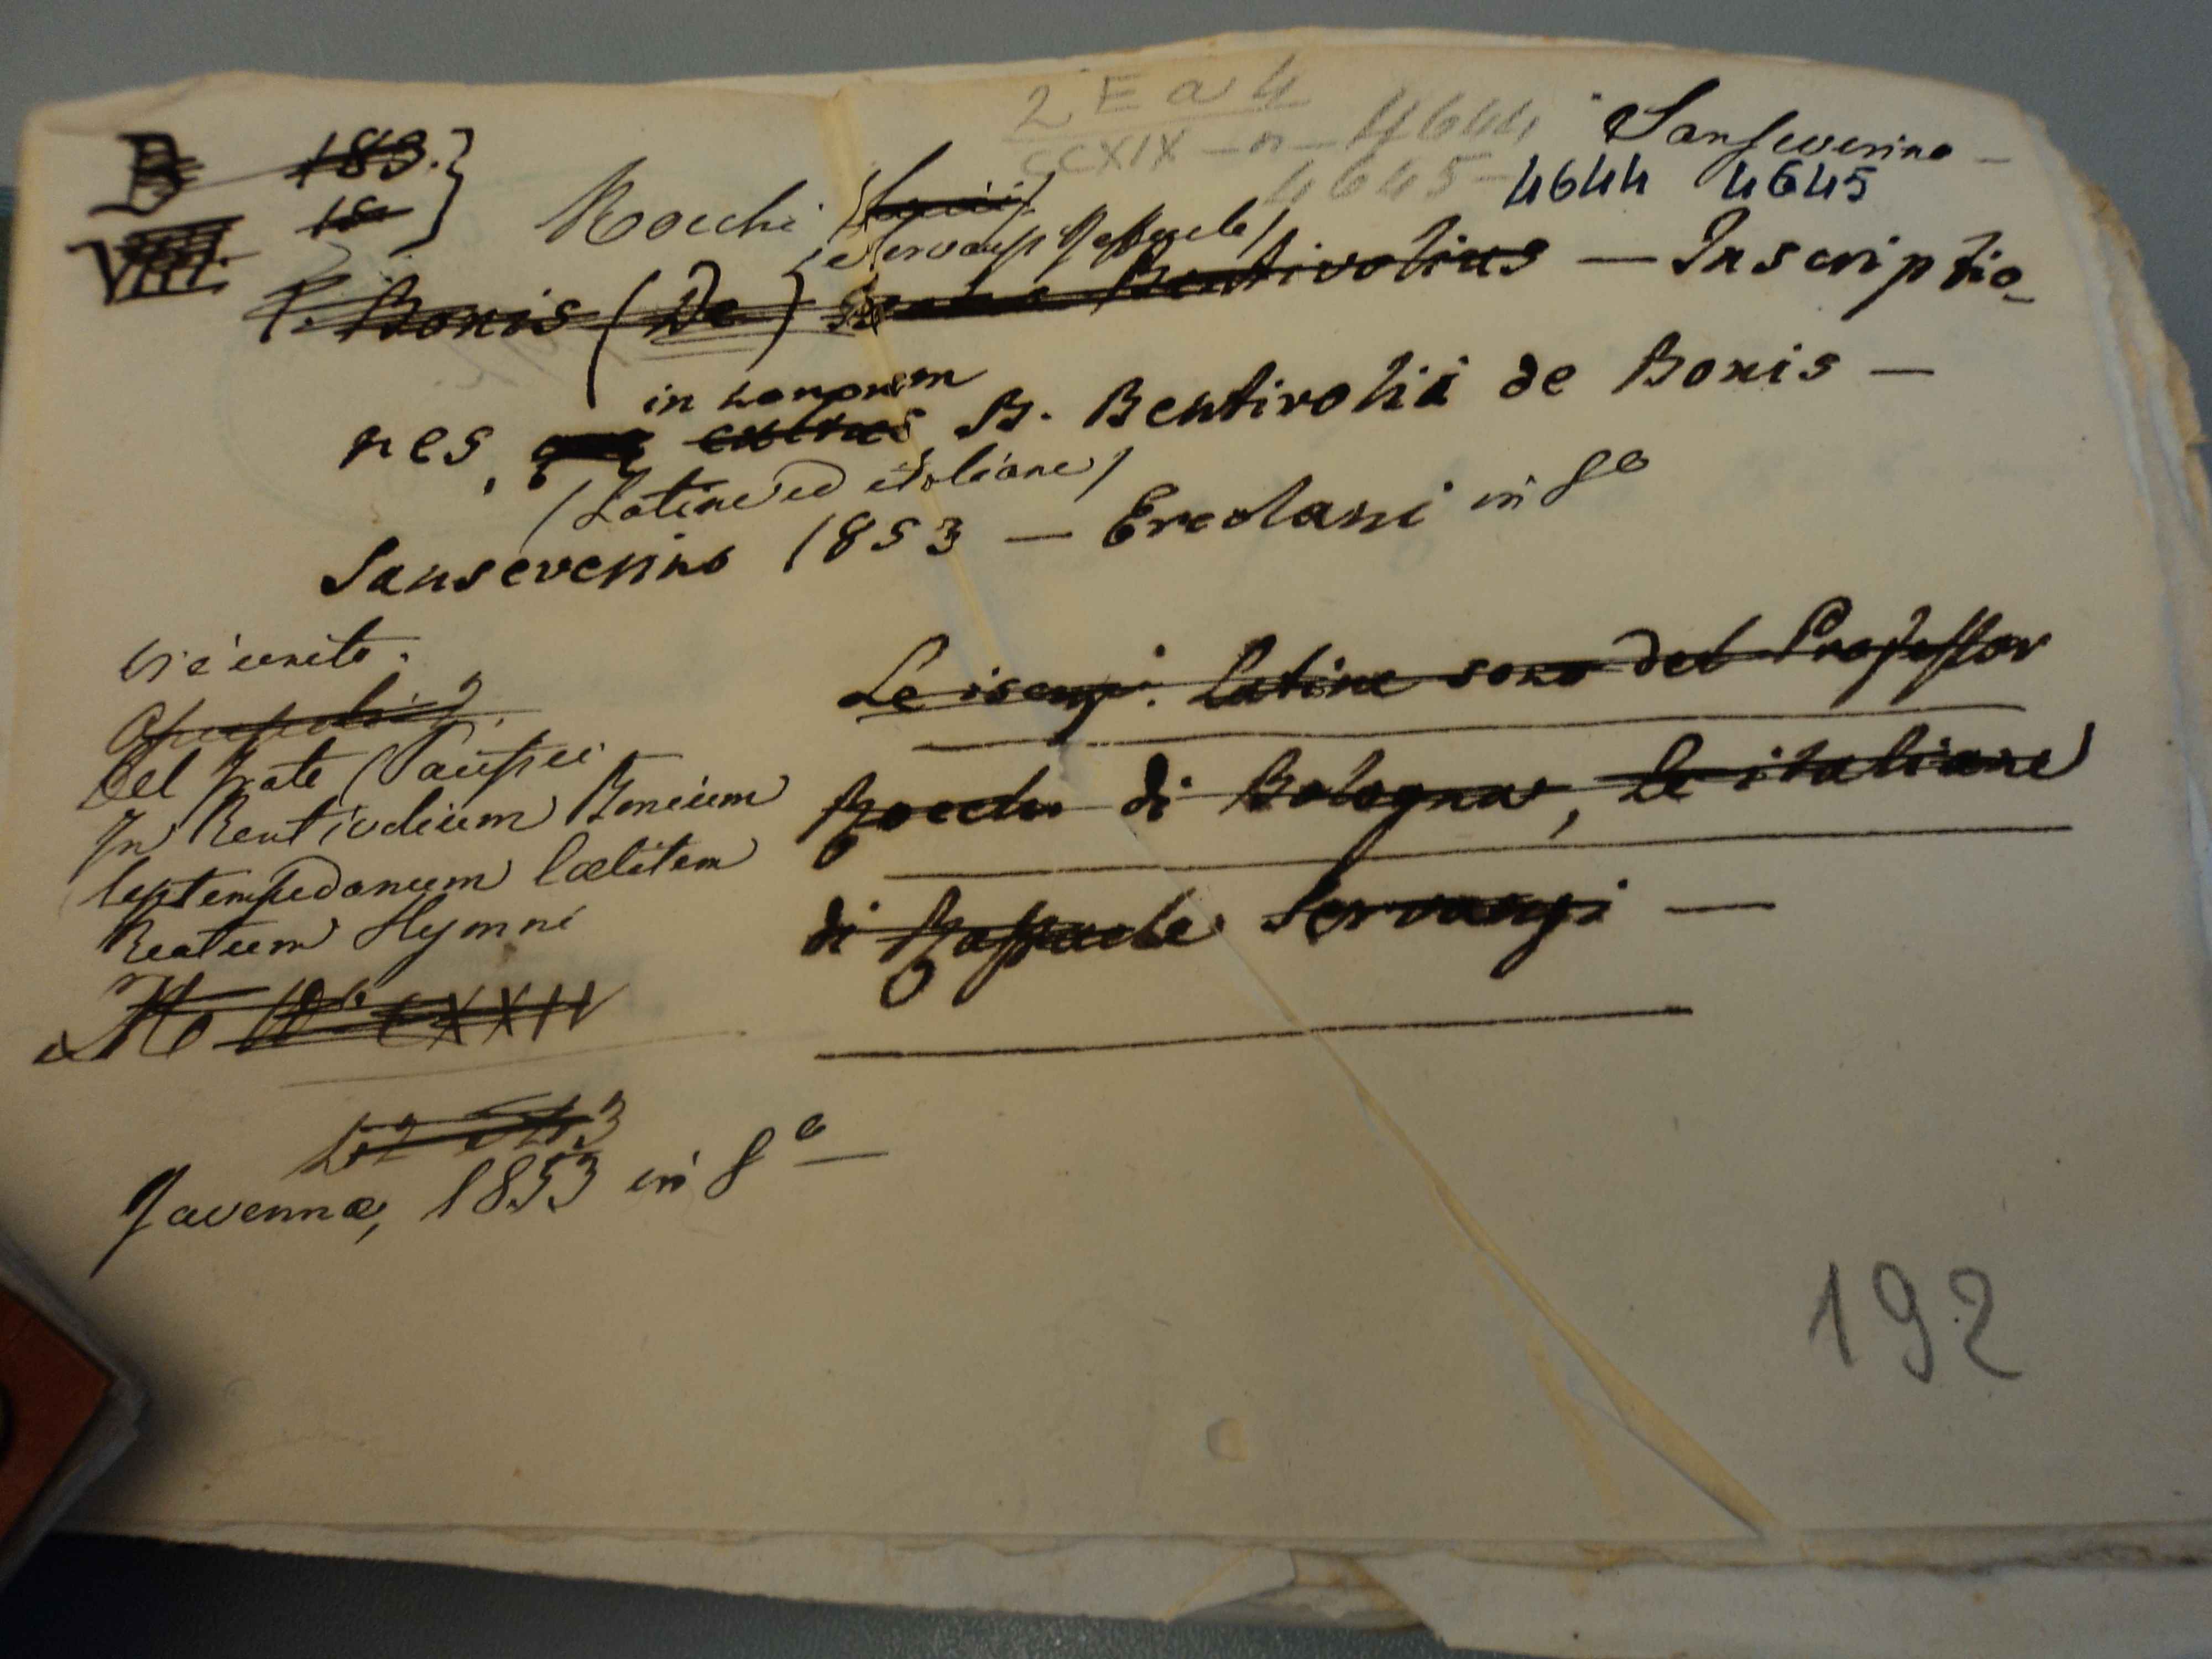 2 E a 4
CCXIX - n - 4644
4645 -
Sanseverino -
4644 4645
B 183.
VIII. 18
Rocchi
e Servanzi Raffaele)
Bonis (De) Bentivolius — Inscriptio-
in honorem
nes, B. Bentivolii de Bonis —
(Latine ed italiane)
Sanseverino 1853 — Ercolani in 8º
Vi è unito:
Del Frate (Pacifici
In Bentivolium Bonium
Septempedanum Cælitem
Beatum Hymni
Ravennæ, 1853 in 8º —
Le iscriz. latine sono del Professor
Rocchi di Bologna, le italiane
di Raffaele Servanzi —
192